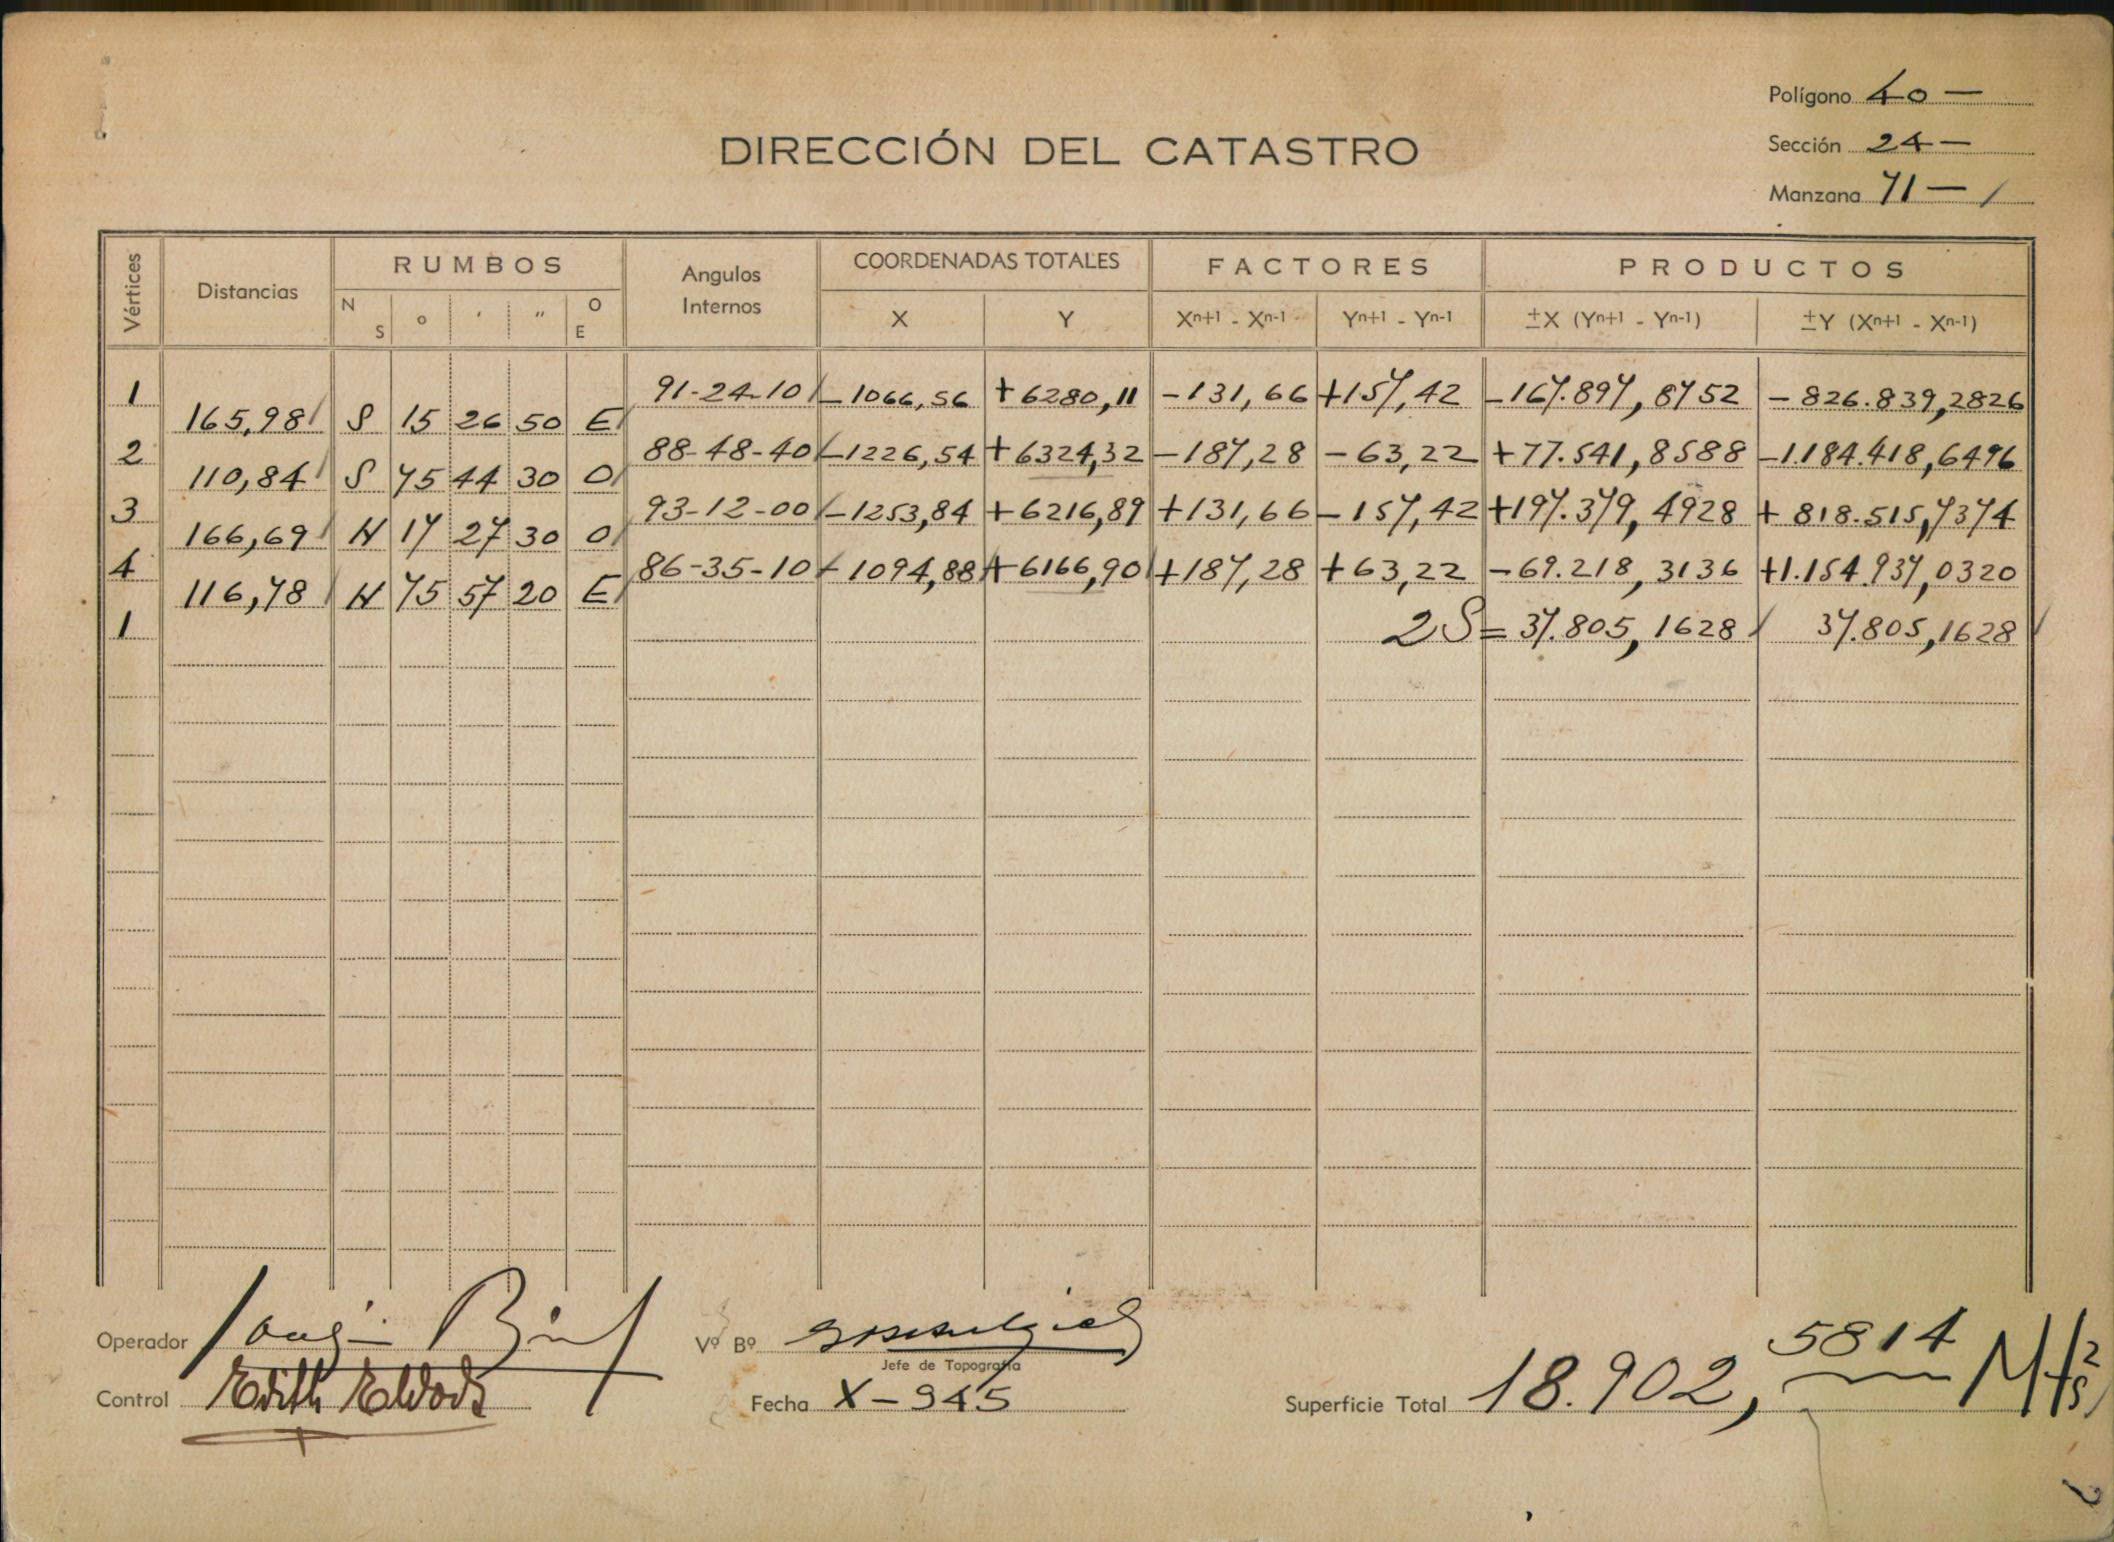 Polígono 40 —
DIRECCIÓN DEL CATASTRO
Sección 24 —
Manzana 71 —
Vértices Distancias RUMBOS Angulos Internos COORDENADAS TOTALES FACTORES PRODUCTOS
N S o ' " O E X Y Xn+1 - Xn-1 Yn+1 - Yn-1 ±X (Yn+1 - Yn-1) ±Y (Xn+1 - Xn-1)
1 91-24-10 -1066,56 +6280,11 -131,66 +157,42 -167.897,8752 -826.839,2826
165,98 S 15 26 50 E
2 88-48-40 -1226,54 +6324,32 -187,28 -63,22 +77.541,8588 -1.184.418,6496
110,84 S 75 44 30 O
3 93-12-00 -1253,84 +6216,89 +131,66 -157,42 +197.379,4928 +818.515,7374
166,69 N 17 27 30 O
4 86-35-10 -1094,88 +6166,90 +187,28 +63,22 -69.218,3136 +1.154.937,0320
116,78 N 75 57 20 E
1 2S= 37.805,1628 37.805,1628
Operador
Vº Bº
Jefe de Topografía
Control Edith
Fecha X-945
Superficie Total 18.902,5814 Mts2